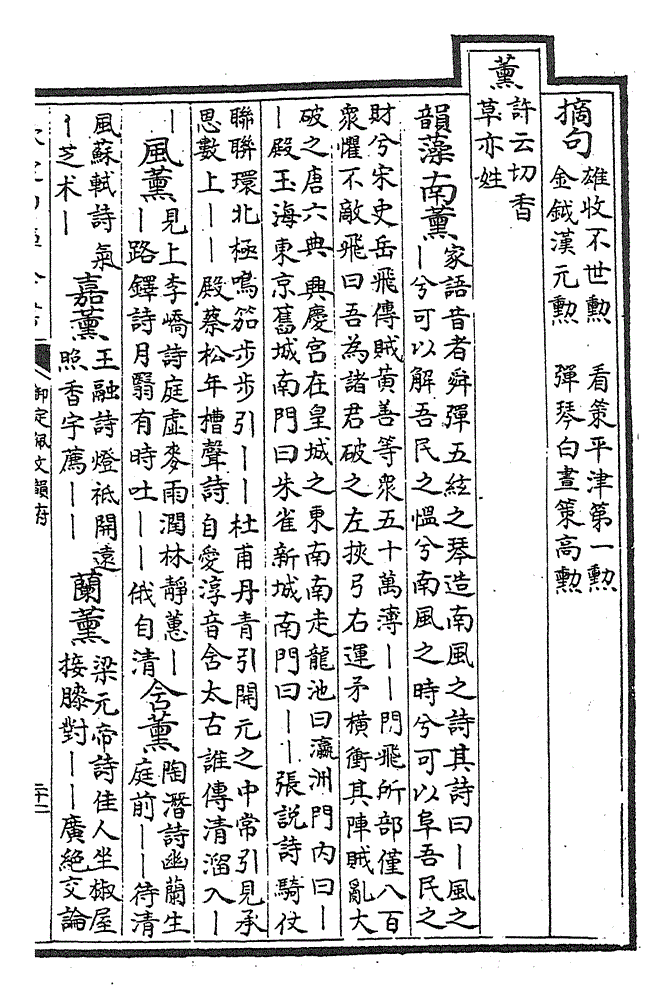 摘句
雄收不世勲　看策平津第一勲
金鉞漢元勲　彈琴白晝策高勲
薰
許云切香
草亦姓
韻藻南薰
家語昔者舜彈五絃之琴造南風之詩其詩曰｜風之
｜兮可以解吾民之愠兮南風之時兮可以阜吾民之
財兮宋史岳飛傳賊黃善等衆五十萬薄｜｜門飛所部僅八百
衆懼不敵飛曰吾為諸君破之左挾弓右運矛橫衝其陣賊亂大
破之唐六典興慶宮在皇城之東南南走龍池曰瀛洲門内曰｜
｜殿玉海東京舊城南門曰朱雀新城南門曰｜｜張説詩騎仗
聯聯環北極鳴笳步步引｜｜杜甫丹青引開元之中常引見承
思數上｜｜殿蔡松年槽聲詩自愛淳音含太古誰傳清溜入｜
｜風薰
見上李嶠詩庭虛麥雨潤林靜蕙｜
｜路鐸詩月翳有時吐｜｜俄自清
含薰
陶潛詩幽蘭生
庭前｜｜待清
風蘇軾詩氣
｜芝术｜
嘉薰
王融詩燈祗開遠
照香宇薦｜｜
蘭薰
梁元帝詩佳人坐椒屋
接膝對｜｜廣絶交論
御定佩文韻府